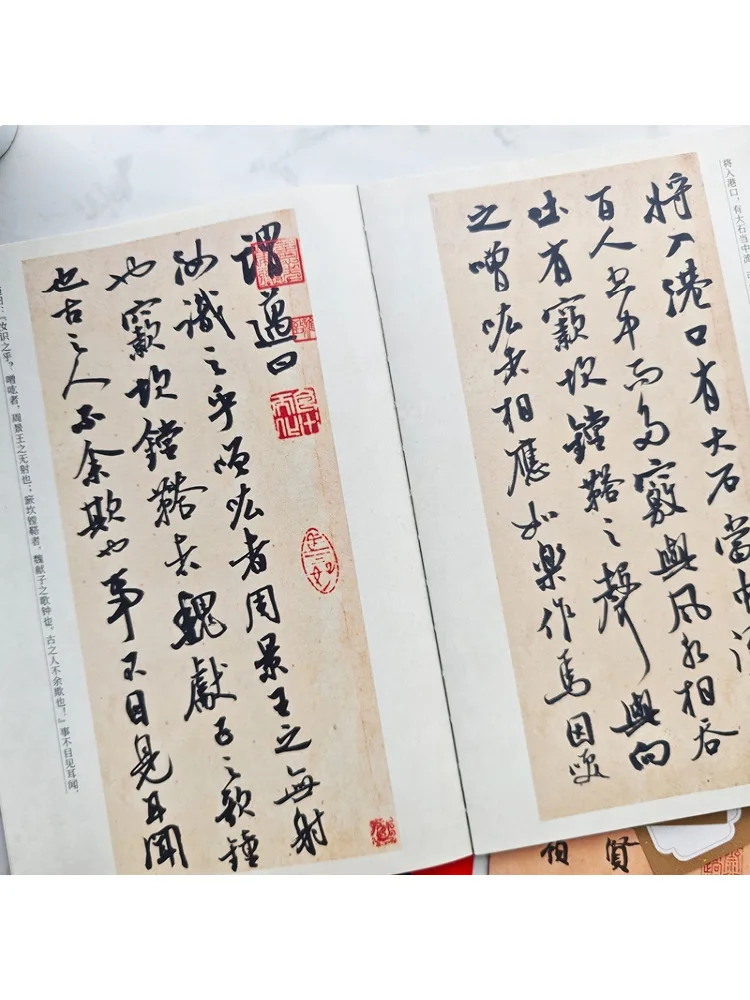 将入港口，有大石当中流，
將入港口有大石當中流
百人空中而多竅與風水相吞
吐有窾坎鏜鞳之聲與向
之噌吰者相應如樂作焉因笑
謂邁曰
汝識之乎噌吰者周景王之無射
也窾坎鏜鞳者魏獻子之歌鐘
也古之人不余欺也事不目見耳聞
曰：『汝识之乎？噌吰者，周景王之无射也；窾坎镗鞳者，魏献子之歌钟也。古之人不余欺也！』事不目见耳闻，
賢